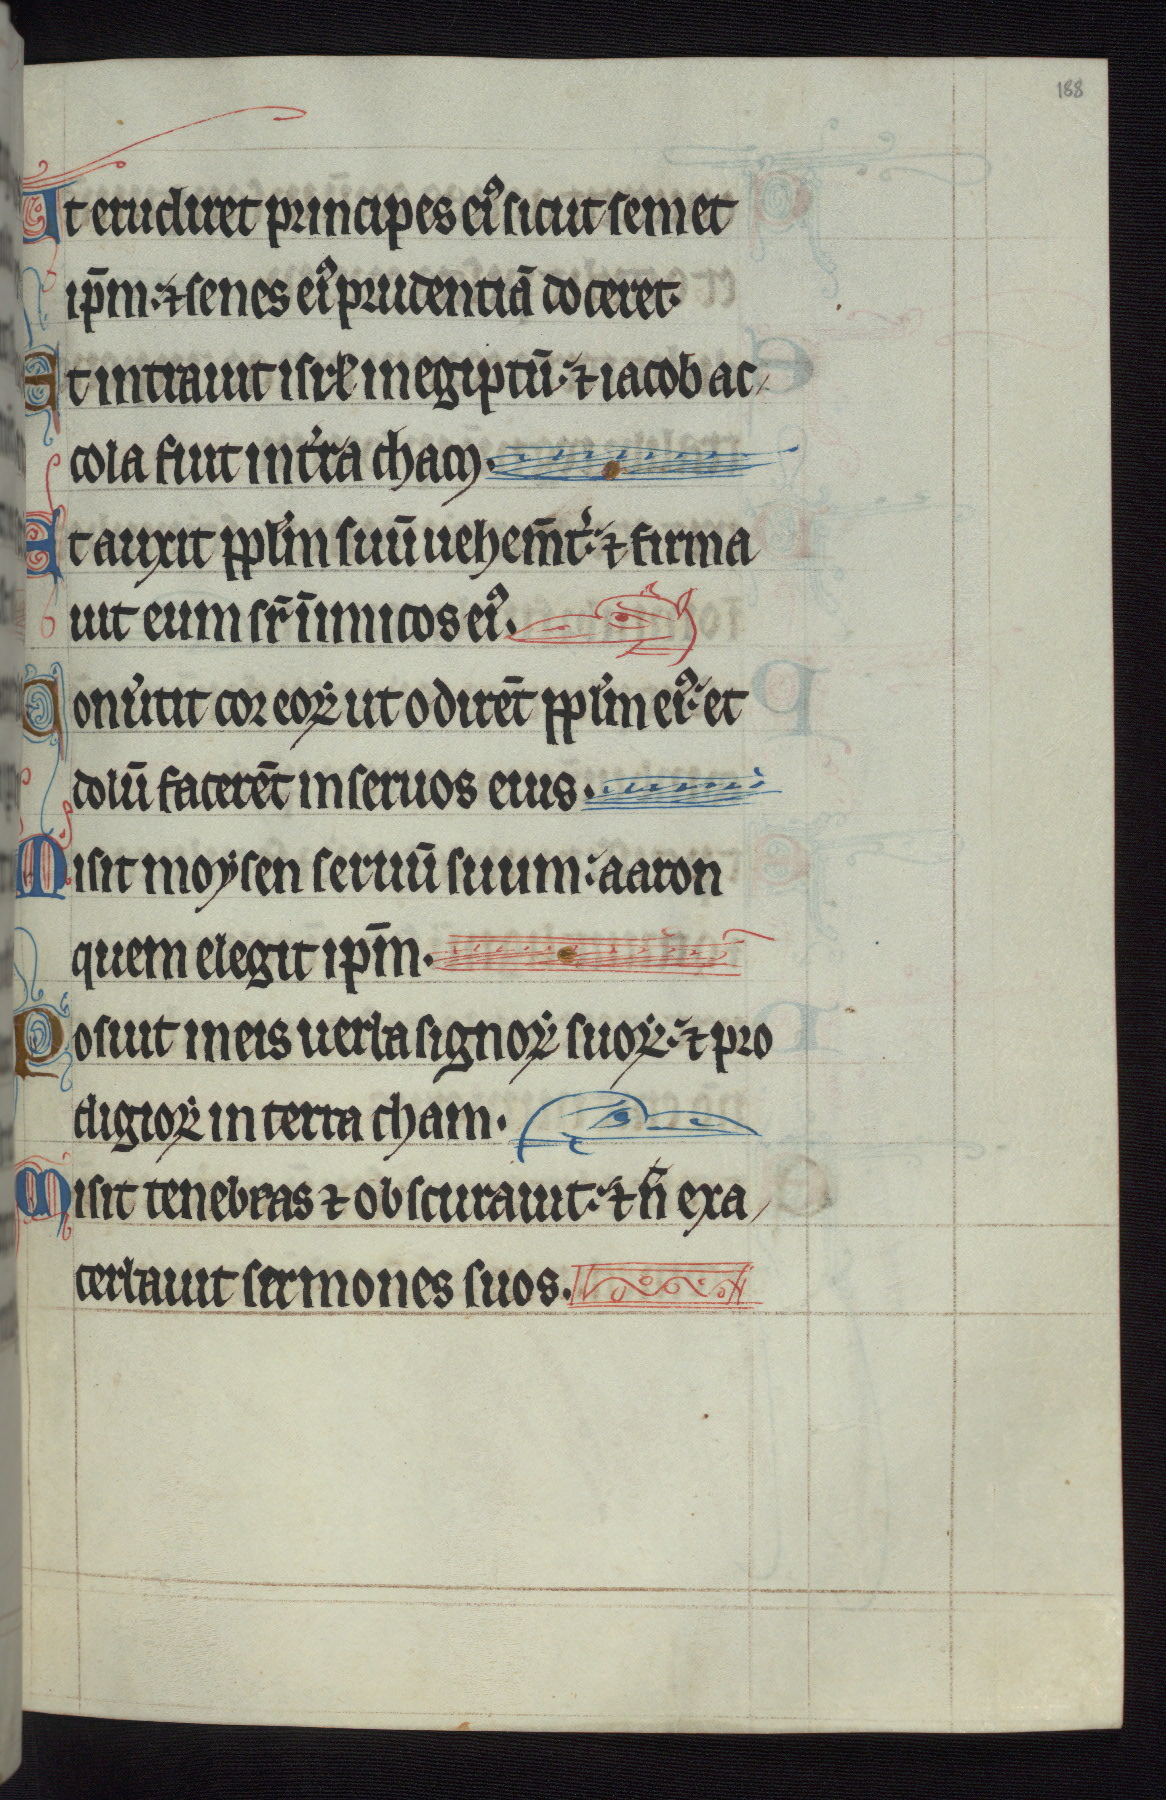 188
Ut erudiret principes eiꝰ sicut semet
ip̄m: ⁊ senes eiꝰ prudentiā doceret.
Et intrauit isrł in egiptū: ⁊ iacob ac
cola fuit in t̓ra cham.
Et auxit pplm̄ suū uehem̄t̓: ⁊ firma
uit eum sr̄ īimicos eiꝰ.
Conu̓tit cor eoꝝ ut odirēt pplm̄ eiꝰ: et
dolū facerēt in seruos eius.
Misit moysen seruū suum: aaron
quem elegit ip̄m.
Posuit in eis uerba signoꝝ suoꝝ: ⁊ pro
digioꝝ in terra cham.
Misit tenebras ⁊ obscurauit: ⁊ n̄ exa
cerbauit sermones suos.